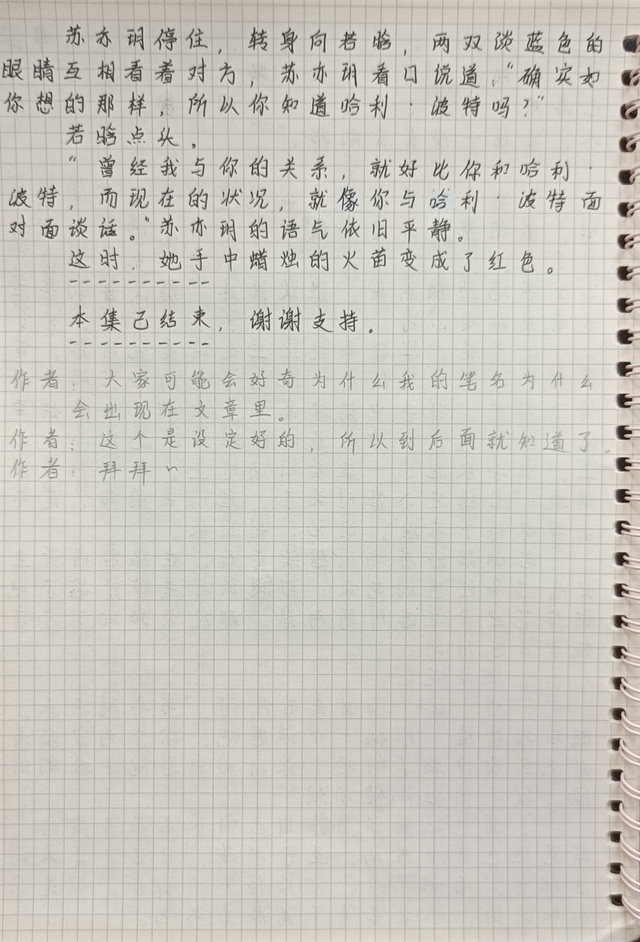 苏亦玥停住，转身向若晗，两双淡蓝色的
眼睛互相看着对方，苏亦玥看口说道："确实如
你想的那样，所以你知道哈利·波特吗？"
若晗点头。
"曾经我与你的关系，就好比你和哈利·
波特，而现在的状况，就像你与哈利·波特面
对面谈话。"苏亦玥的语气依旧平静。
这时，她手中蜡烛的火苗变成了红色。
----------
本集已结束，谢谢支持。
----------
作者：大家可能会好奇为什么我的笔名为什么
会出现在文章里。
作者：这个是设定好的，所以到后面就知道了。
作者：拜拜~